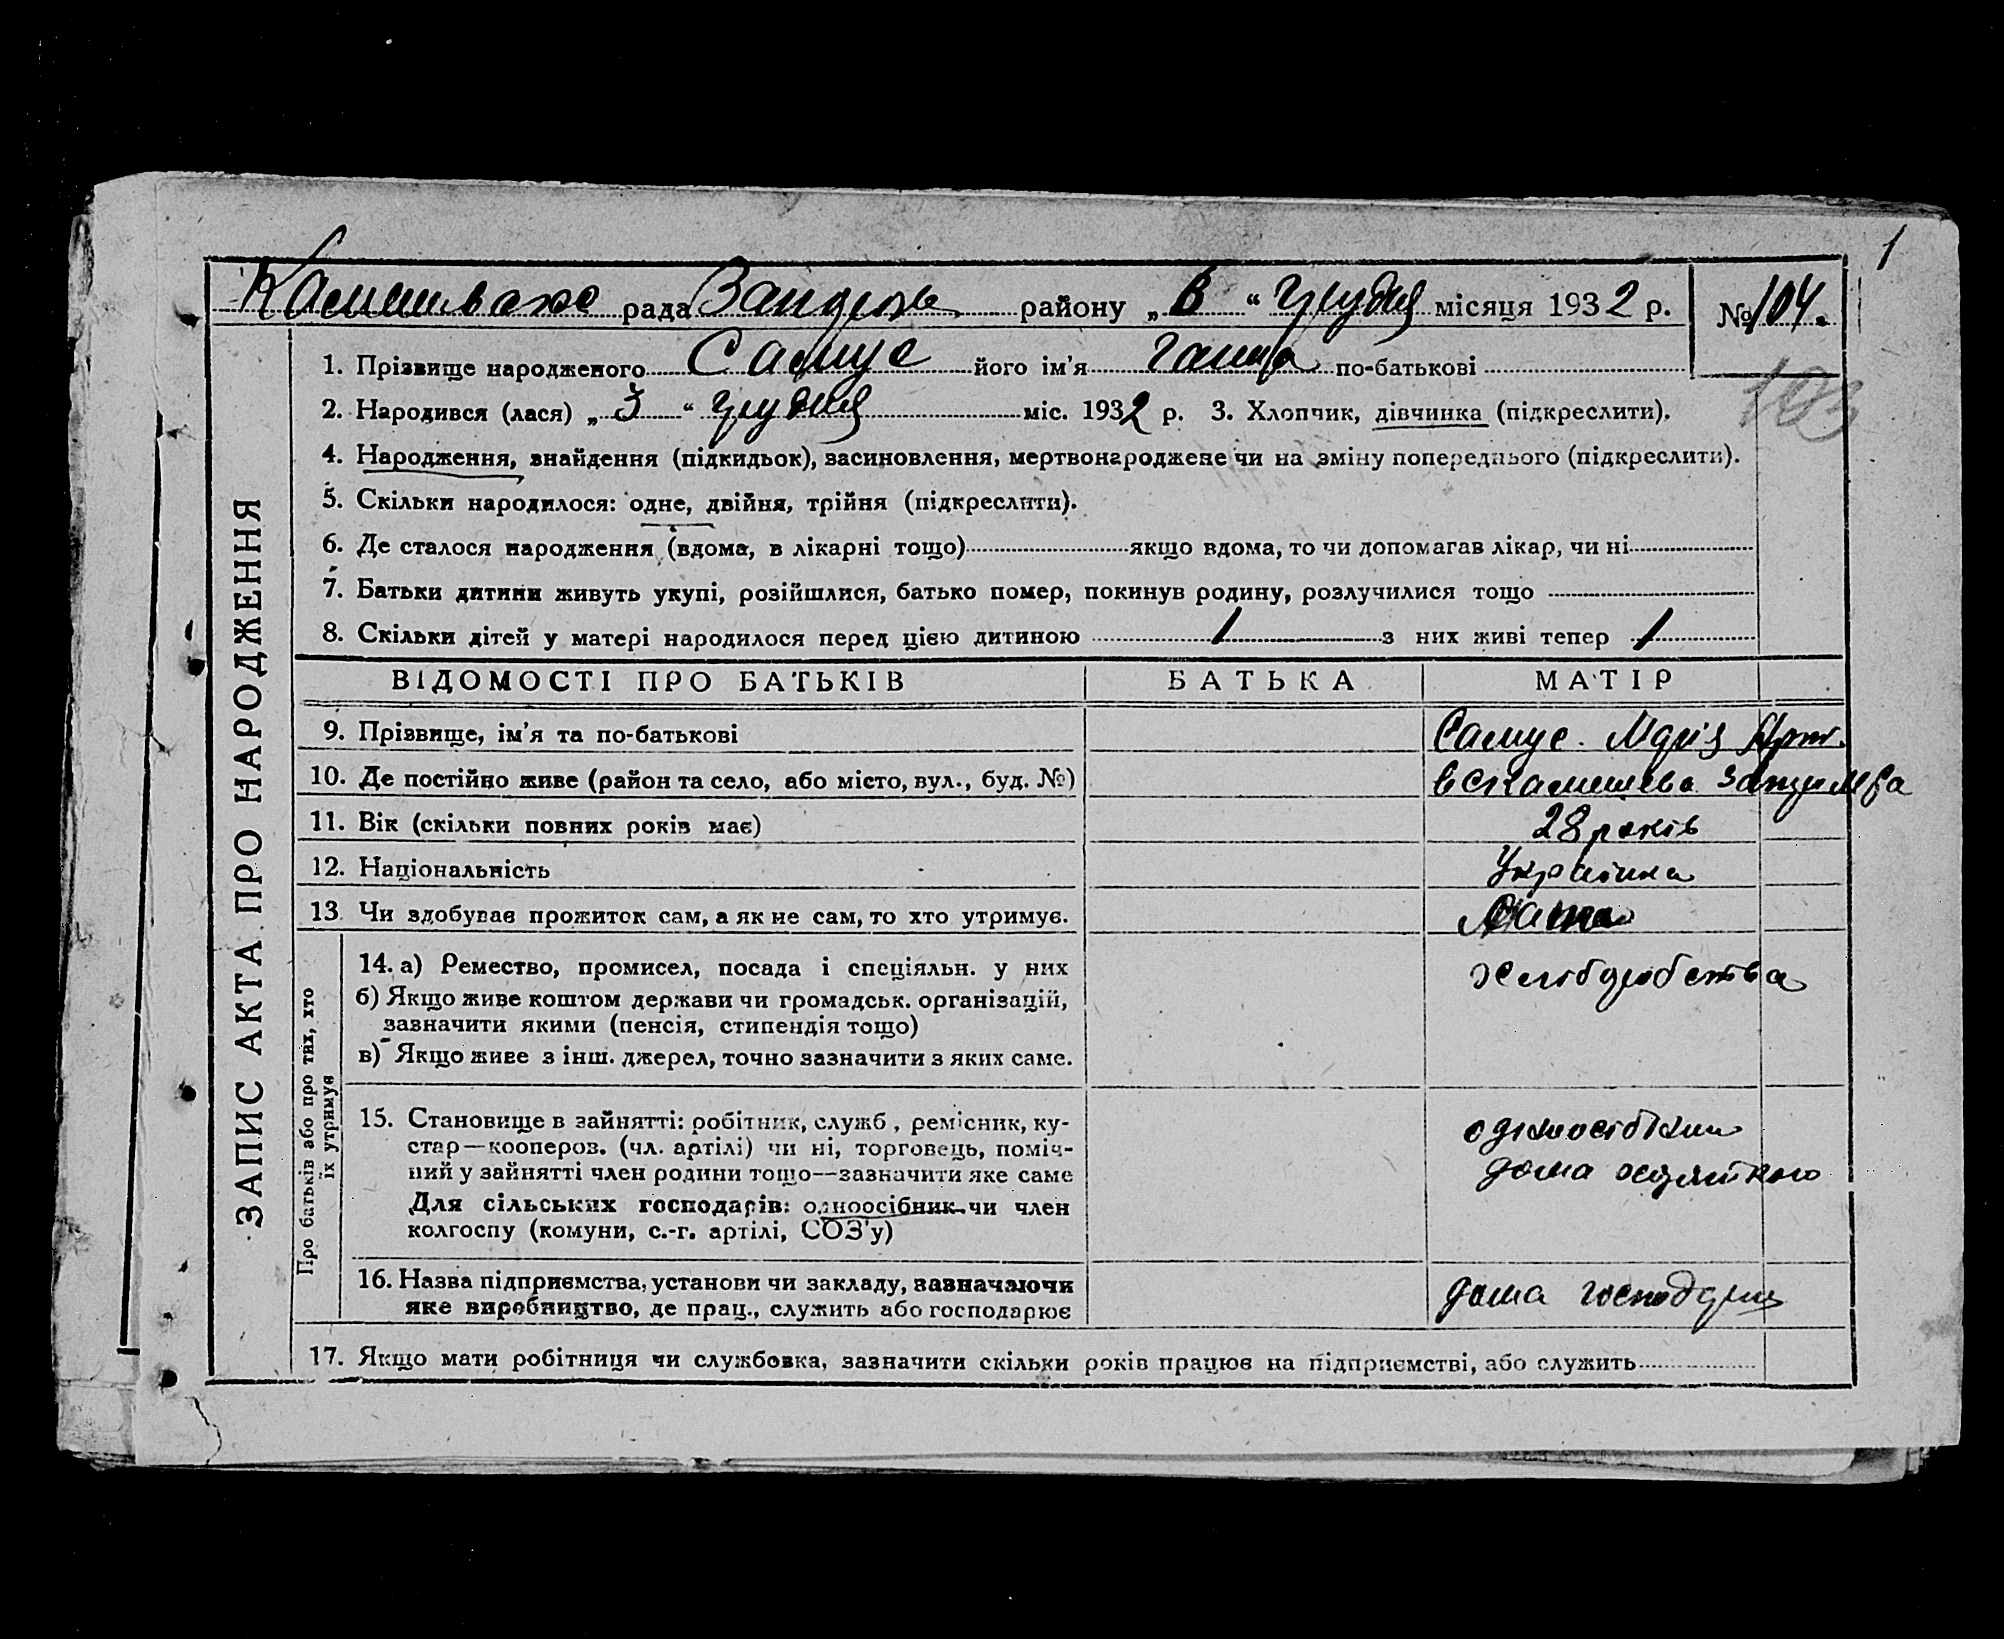 1
рада району „ 6 “ Грудня місяця 1932 р. № 104.
103
ЗАПИС АКТА ПРО НАРОДЖЕННЯ
1. Прізвище народженого Самус його ім’я Ганна по-батькові
2. Народився (лася) „ 3 “ Грудня міс. 1932 р. 3. Хлопчик, дівчинка (підкреслити).
4. Народження, знайдення (підкидьок), засиновлення, мертвонароджене чи на зміну попереднього (підкреслити).
5. Скільки народилося: одне, двійня, трійня (підкреслити).
6. Де сталося народження (вдома, в лікарні тощо) якщо вдома, то чи допомагав лікар, чи ні
7. Батьки дитини живуть укупі, розійшлися, батько помер, покинув родину, розлучилися тощо
8. Скільки дітей у матері народилося перед цією дитиною 1 з них живі тепер 1
ВІДОМОСТІ ПРО БАТЬКІВ БАТЬКА МАТІР
9. Прізвище, ім’я та по-батькові Самус. Марія Арт.
10. Де постійно живе (район та село, або місто, вул., буд. №)
11. Вік (скільки повних років має) 28 років
12. Національність Українка
13. Чи здобуває прожиток сам, а як не сам, то хто утримує.
Про батьків або про тих, хто
їх утримує
14. а) Ремество, промисел, посада і спеціяльн. у них хліборобства
б) Якщо живе коштом держави чи громадськ. організацій,
зазначити якими (пенсія, стипендія тощо)
в) Якщо живе з інш. джерел, точно зазначити з яких саме.
15. Становище в зайнятті: робітник, служб., ремісник, ку-
стар—кооперов. (чл. артілі) чи ні, торговець, поміч-
ний у зайнятті член родини тощо—зазначити яке саме
Для сільських господарів: одноосібник чи член
колгоспу (комуни, с.-г. артілі, СОЗ’у)
дома
16. Назва підприємства, установи чи закладу, зазначаючи
яке виробництво, де прац., служить або господарює
дома господарює
17. Якщо мати робітниця чи службовка, зазначити скільки років працює на підприємстві, або служить